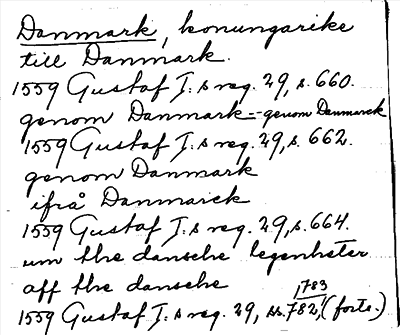 Danmark, konungarike
till Danmark.
1559 Gustaf I:s reg. 29, s. 660.
genom Danmark = genom Danmarck
1559 Gustaf I:s reg. 29, s. 662.
genom Danmark
ifrå Danmarck
1559 Gustaf I:s reg. 29, s. 664.
um the dansche legenheter
aff the dansche
1783
1559 Gustaf I:s reg. 29, ss. 782, (forts.)